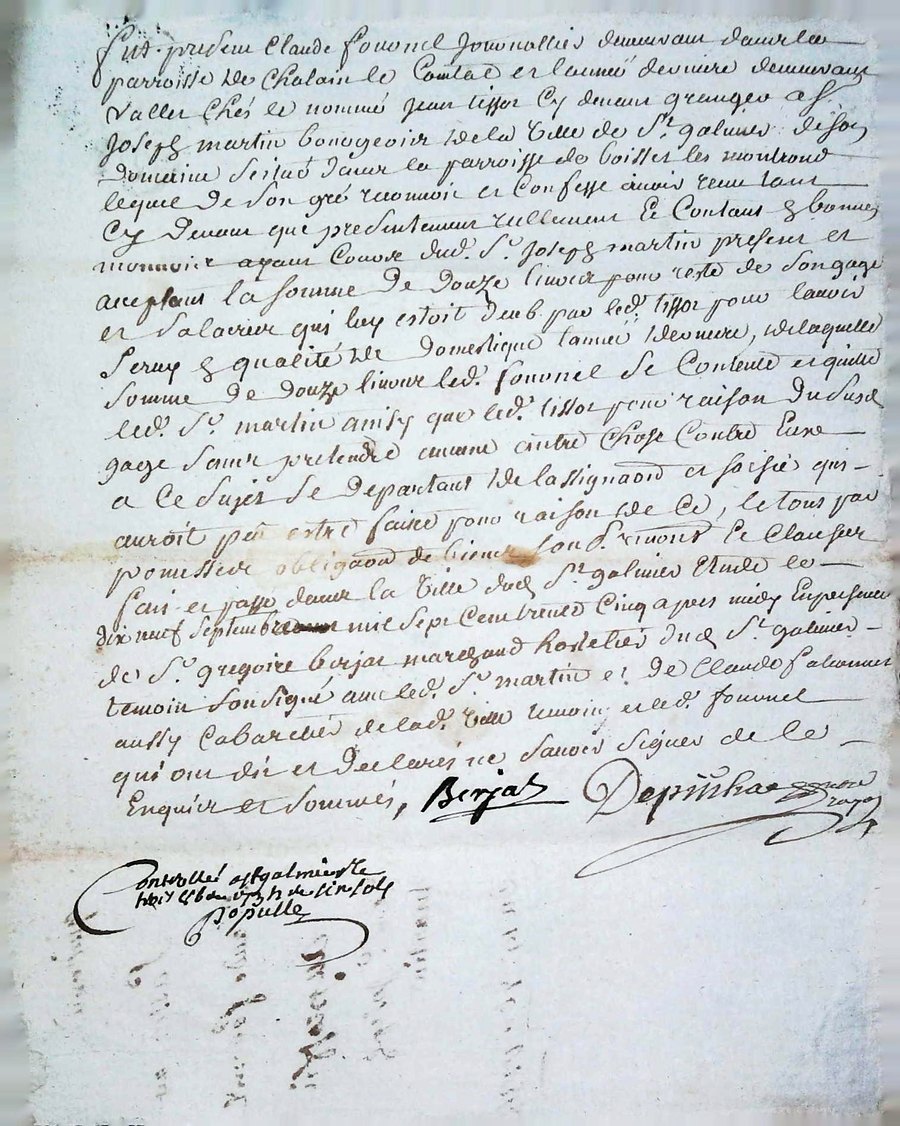 fut present Claude fournel Journallier demeurant dans la
parroisse de Chalain le Comtal et l'année derniere demeurant
vallet Chés le nommé jean tissot Cy devant granger a Sr
Joseph martin bourgeois de la ville de St galmier de son
domaine scitué dans la parroisse de boisset les montrond
lequel de son gré reconnoit et Confesse avoir receu tant
Cy devant que presentement reellement Et Contant En bonne
monnoie ayant Cours dud. Sr. Joseph martin present et
acceptant la somme de douze livres pour reste de son gage
et salaires qui luy estoit deub par led. tissot pour l'avoir
servy En qualité de domestique l'année derniere, de laquelle
somme de douze livres led. fournel se Contente et quitte
led. Sr. martin ainsy que led. tissot pour raison du susd
gage sans pretendre aucune autre Chose Contre Eux
a Ce sujet se departant de l'assignaon et saisie qui
auroit peu estre faite pour raison de Ce, le tous par
promesses obligaon de biens soub. renons Et Clauses
fait et passé dans la ville dud St galmier Etude le
dix neuf septembre mil sept Cent trente Cinq apres midy En presence
de Sr. gregoire berjat marchand hostelier dud St galmier
temoin sousigné avec led. Sr. martin et de Claude
aussy Cabaretier de lad. ville temoin et led. fournel
qui ont dit et declarés ne savoir signer de Ce
Enquis et sommés, Berjat Depuihac
Controllé a St galmier le
sols
Populle